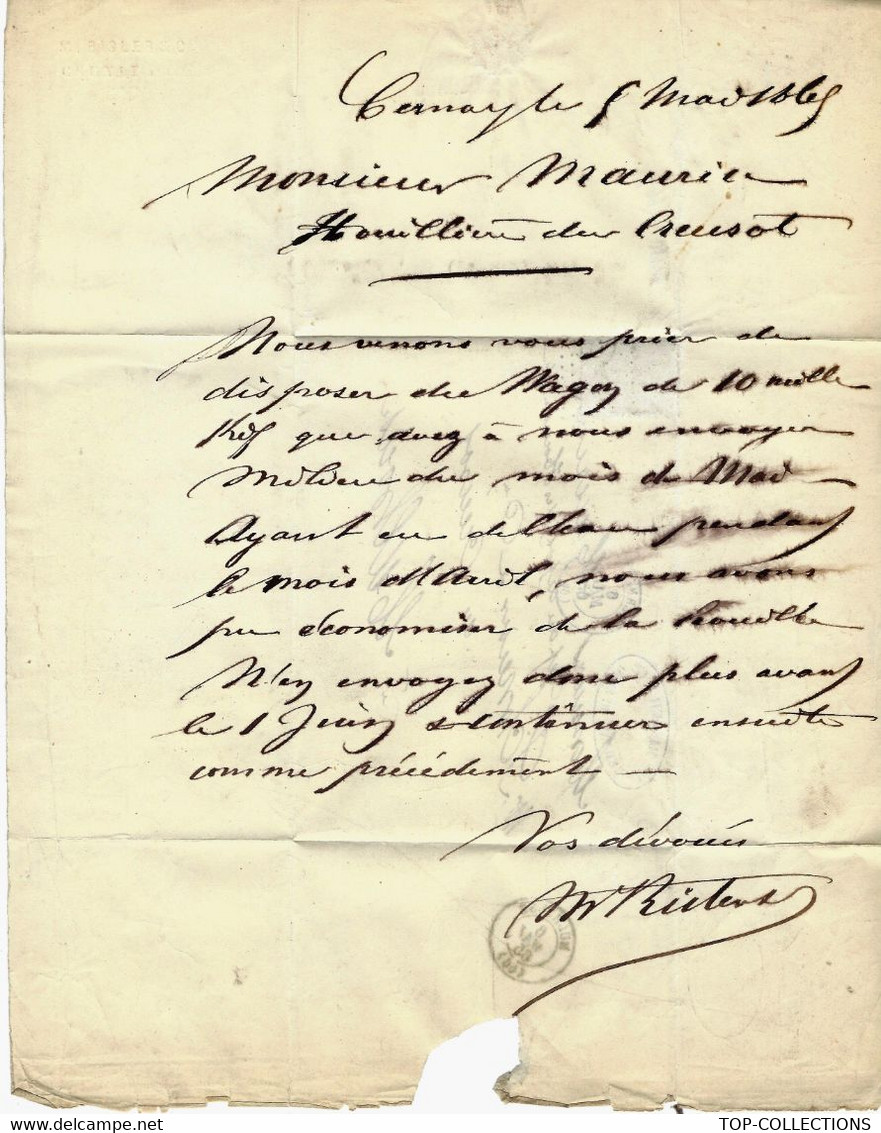 Cernay le 5 Mai 1865
Monsieur Maurice
Houillière du Creusot
Nous venons vous prier de
disposer du Wagon de 10 mille
Kos que avez à nous envoyer
milieu du mois de Mai
Ayant eu de l'eau pendant
le mois d'Avril, nous avons
pu économiser de la houille
N'en envoyez donc plus avant
le 1 Juin & continuer ensuite
comme précédement
Vos dévoués
TOP-COLLECTIONS